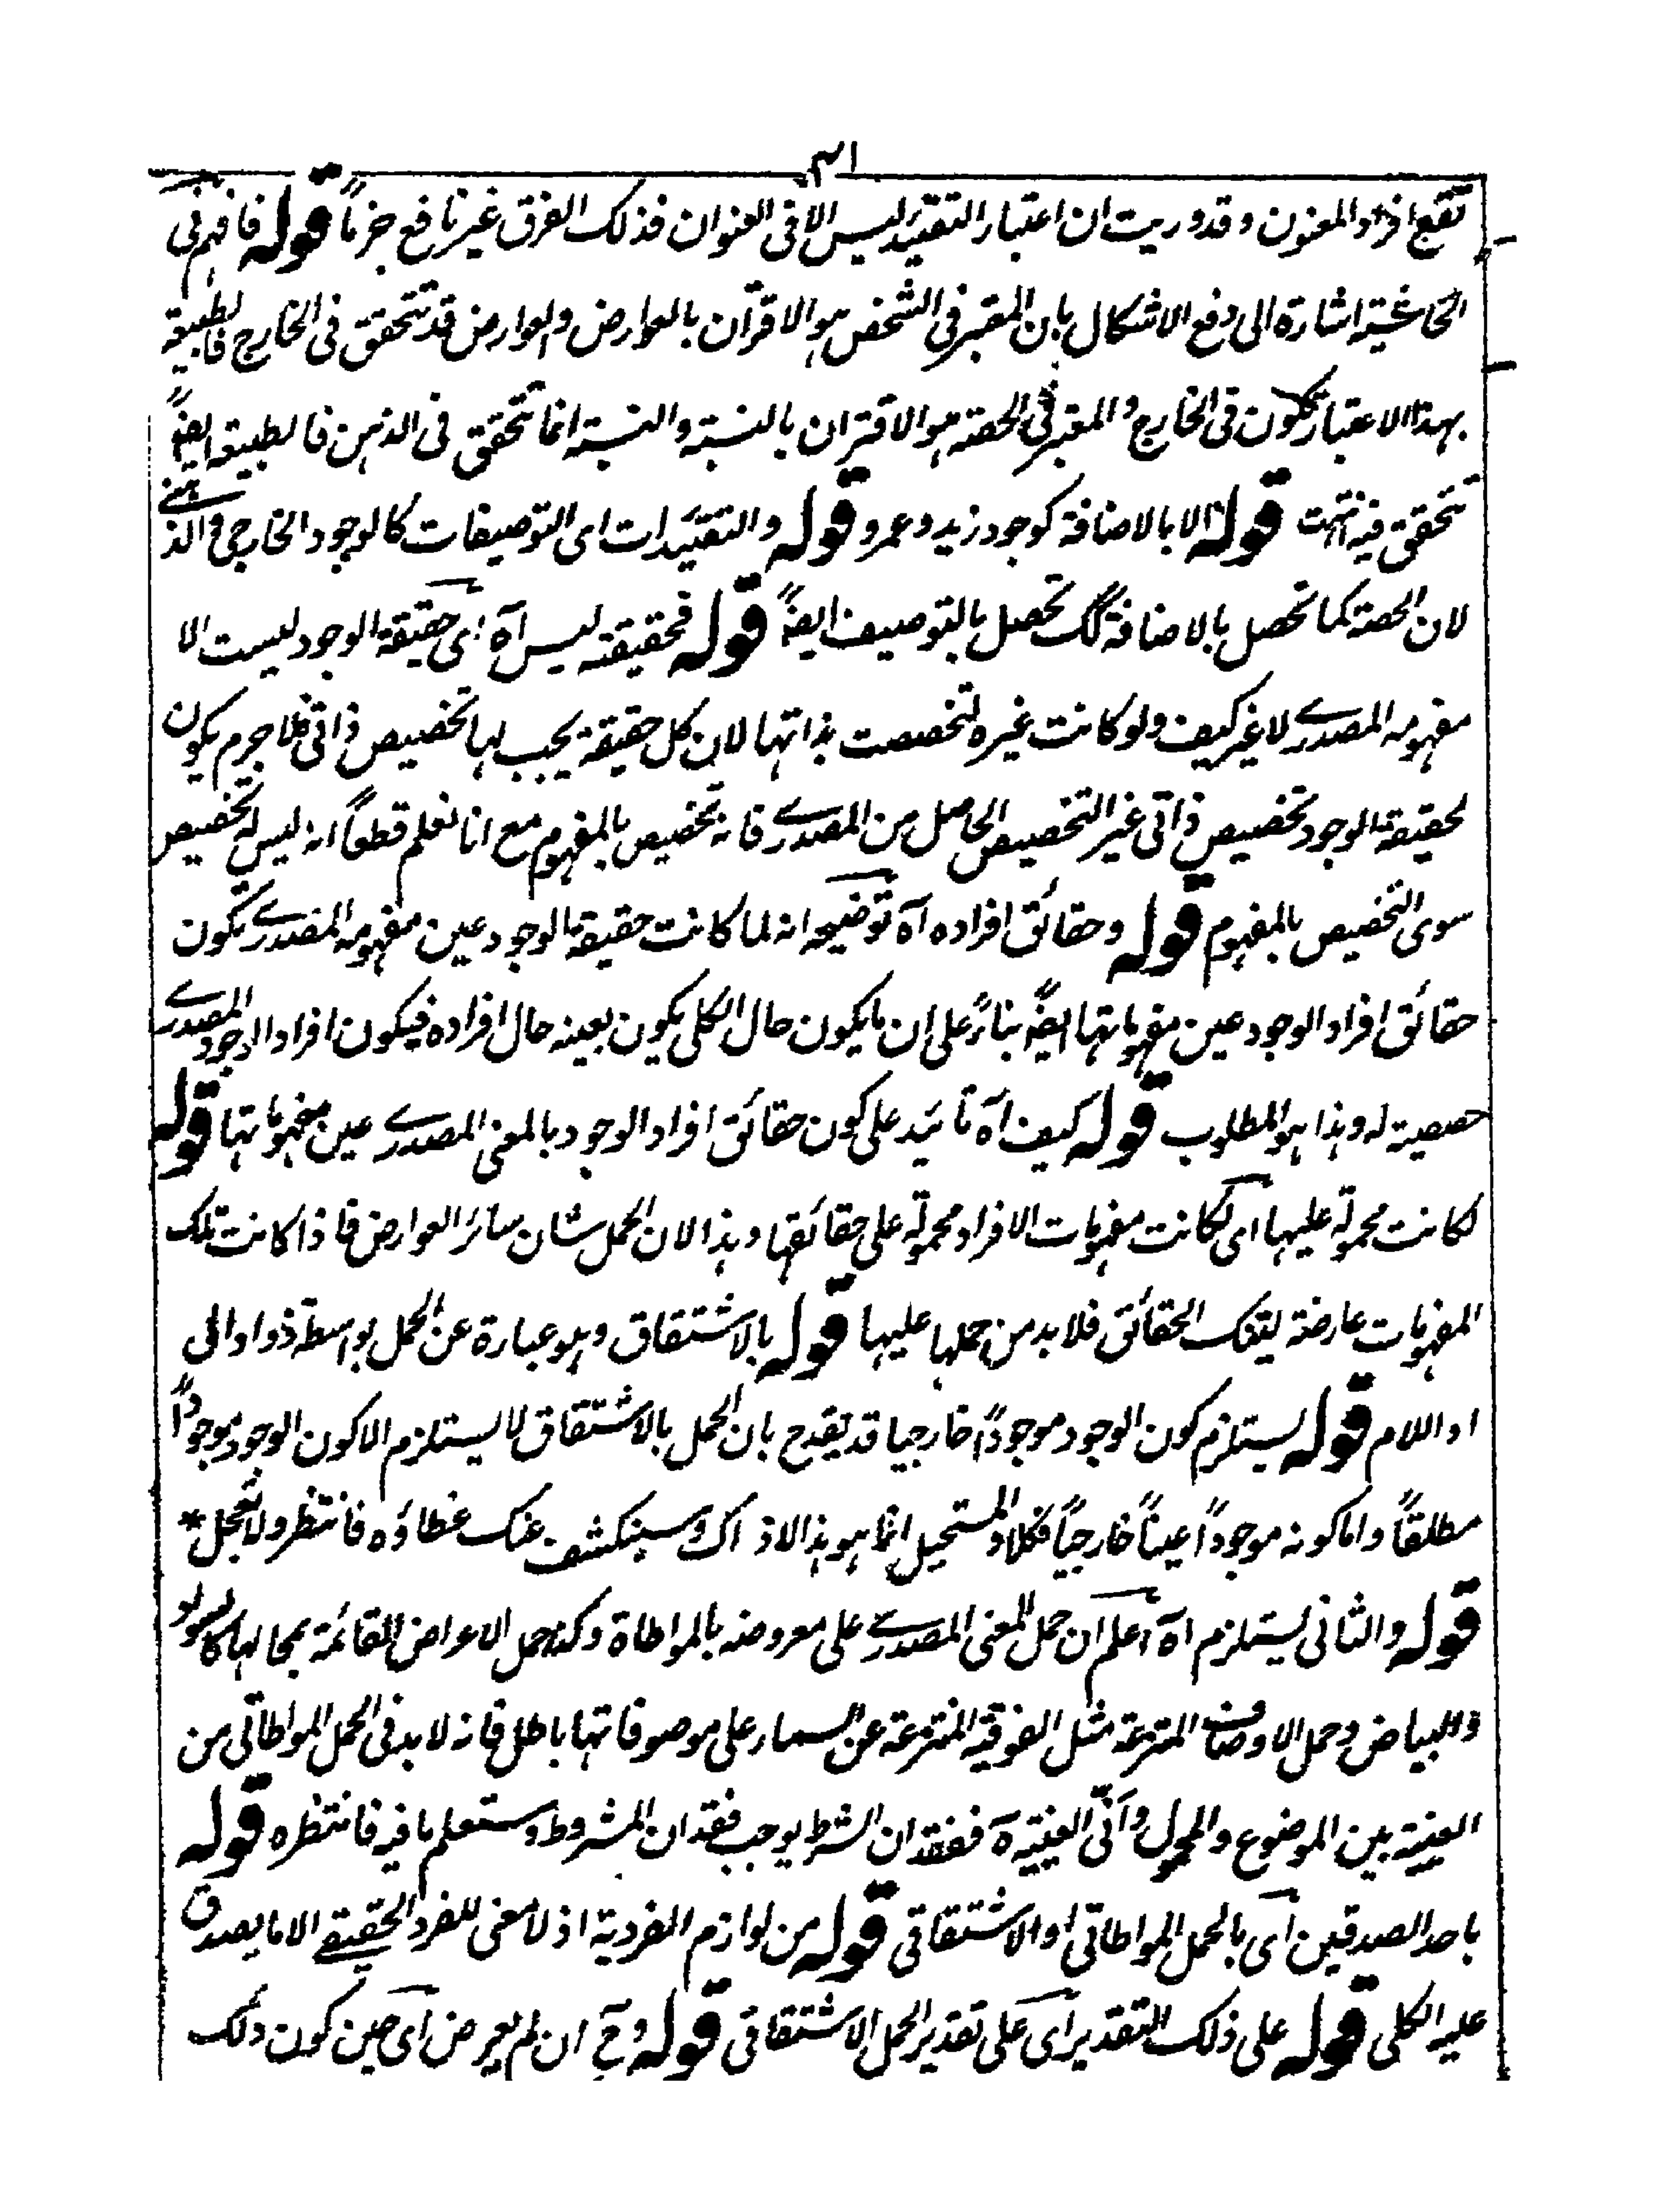 ١٣١
تقع افراد المعنون وقد دريت ان اعتبار التقييد ليس الا فى العنوان فذلك الفرق غير نافع جزماً قوله فافهم فى
الحاشية اشارة الى دفع الاشكال بان المعتبر فى الشخص هو الاقتران بالعوارض والعوارض قد تتحقق فى الخارج فالطبيعة
بهذا الاعتبار تكون فى الخارج والمعتبر فى الحصة هو الاقتران بالنسبة والنسبة انما تتحقق فى الذهن فالطبيعة ايضاً
تتحقق فيه انتهت قوله الا بالاضافة كوجود زيد وعمرو قوله والتقييدات اى التوصيفات كالوجود الخارجى والذهنى
لان الحصة كما تحصل بالاضافة كك تحصل بالتوصيف ايضاً قوله فحقيقته ليس آه اى حقيقة الوجود ليست الا
مفهومه المصدرى لا غير كيف ولو كانت غيره لتخصصت بذاتها لان كل حقيقة يجب لها تخصيص ذاتى فلا جرم يكون
لحقيقة الوجود تخصيص ذاتى غير التخصيص الحاصل من المصدرى فانه تخصيص بالمفهوم مع انا نعلم قطعاً انه ليس له تخصيص
سوى التخصيص بالمفهوم قوله وحقائق افراده آه توضيحه انه لما كانت حقيقة الوجود عين مفهومه المصدرى تكون
حقائق افراد الوجود عين مفهوماتها ايضاً بناءً على ان ما يكون حال الكلى يكون بعينه حال افراده فيكون افراد الوجود المصدرى
حصصية له وهذا هو المطلوب قوله كيف آه تائيد على كون حقائق افراد الوجود بالمعنى المصدرى عين مفهوماتها قوله
لكانت محمولة عليها اى لكانت مفهومات الافراد محمولة على حقائقها وهذا لان الحمل شان سائر العوارض فاذا كانت تلك
المفهومات عارضة لتلك الحقائق فلا بد من حملها عليها قوله بالاشتقاق وهو عبارة عن الحمل بواسطة ذو او فى
او اللام قوله يستلزم كون الوجود موجوداً خارجيا قد يقدح بان الحمل بالاشتقاق لا يستلزم الا كون الوجود موجوداً
مطلقاً واما كونه موجوداً عيناً خارجياً فكلا والمستحيل انما هو هذا لا ذاك وسينكشف عنك غطاؤه فانتظر ولا تعجل *
قوله والثانى يستلزم آه اعلم ان حمل المعنى المصدرى على معروضه بالمواطاة وكذا حمل الاعراض القائمة بمحالها كالسواد
والبياض وحمل الاوصاف المنتزعة مثل الفوقية المنتزعة عن السماء على موصوفاتها باطل فانه لا بد فى الحمل المواطاتى من
العينية بين الموضوع والمحمول وانّى العينية ه ففقدان الشرط يوجب فقدان المشروط وستعلم ما فيه فانتظره قوله
باحد الصدقين اى بالحمل المواطاتى او الاشتقاقى قوله من لوازم الفردية اذ لا معنى للفرد الحقيقى الا ما يصدق
عليه الكلى قوله على ذلك التقدير اى على تقدير الحمل الاشتقاقى قوله وح ان لم يعرض اى حين كون ذلك